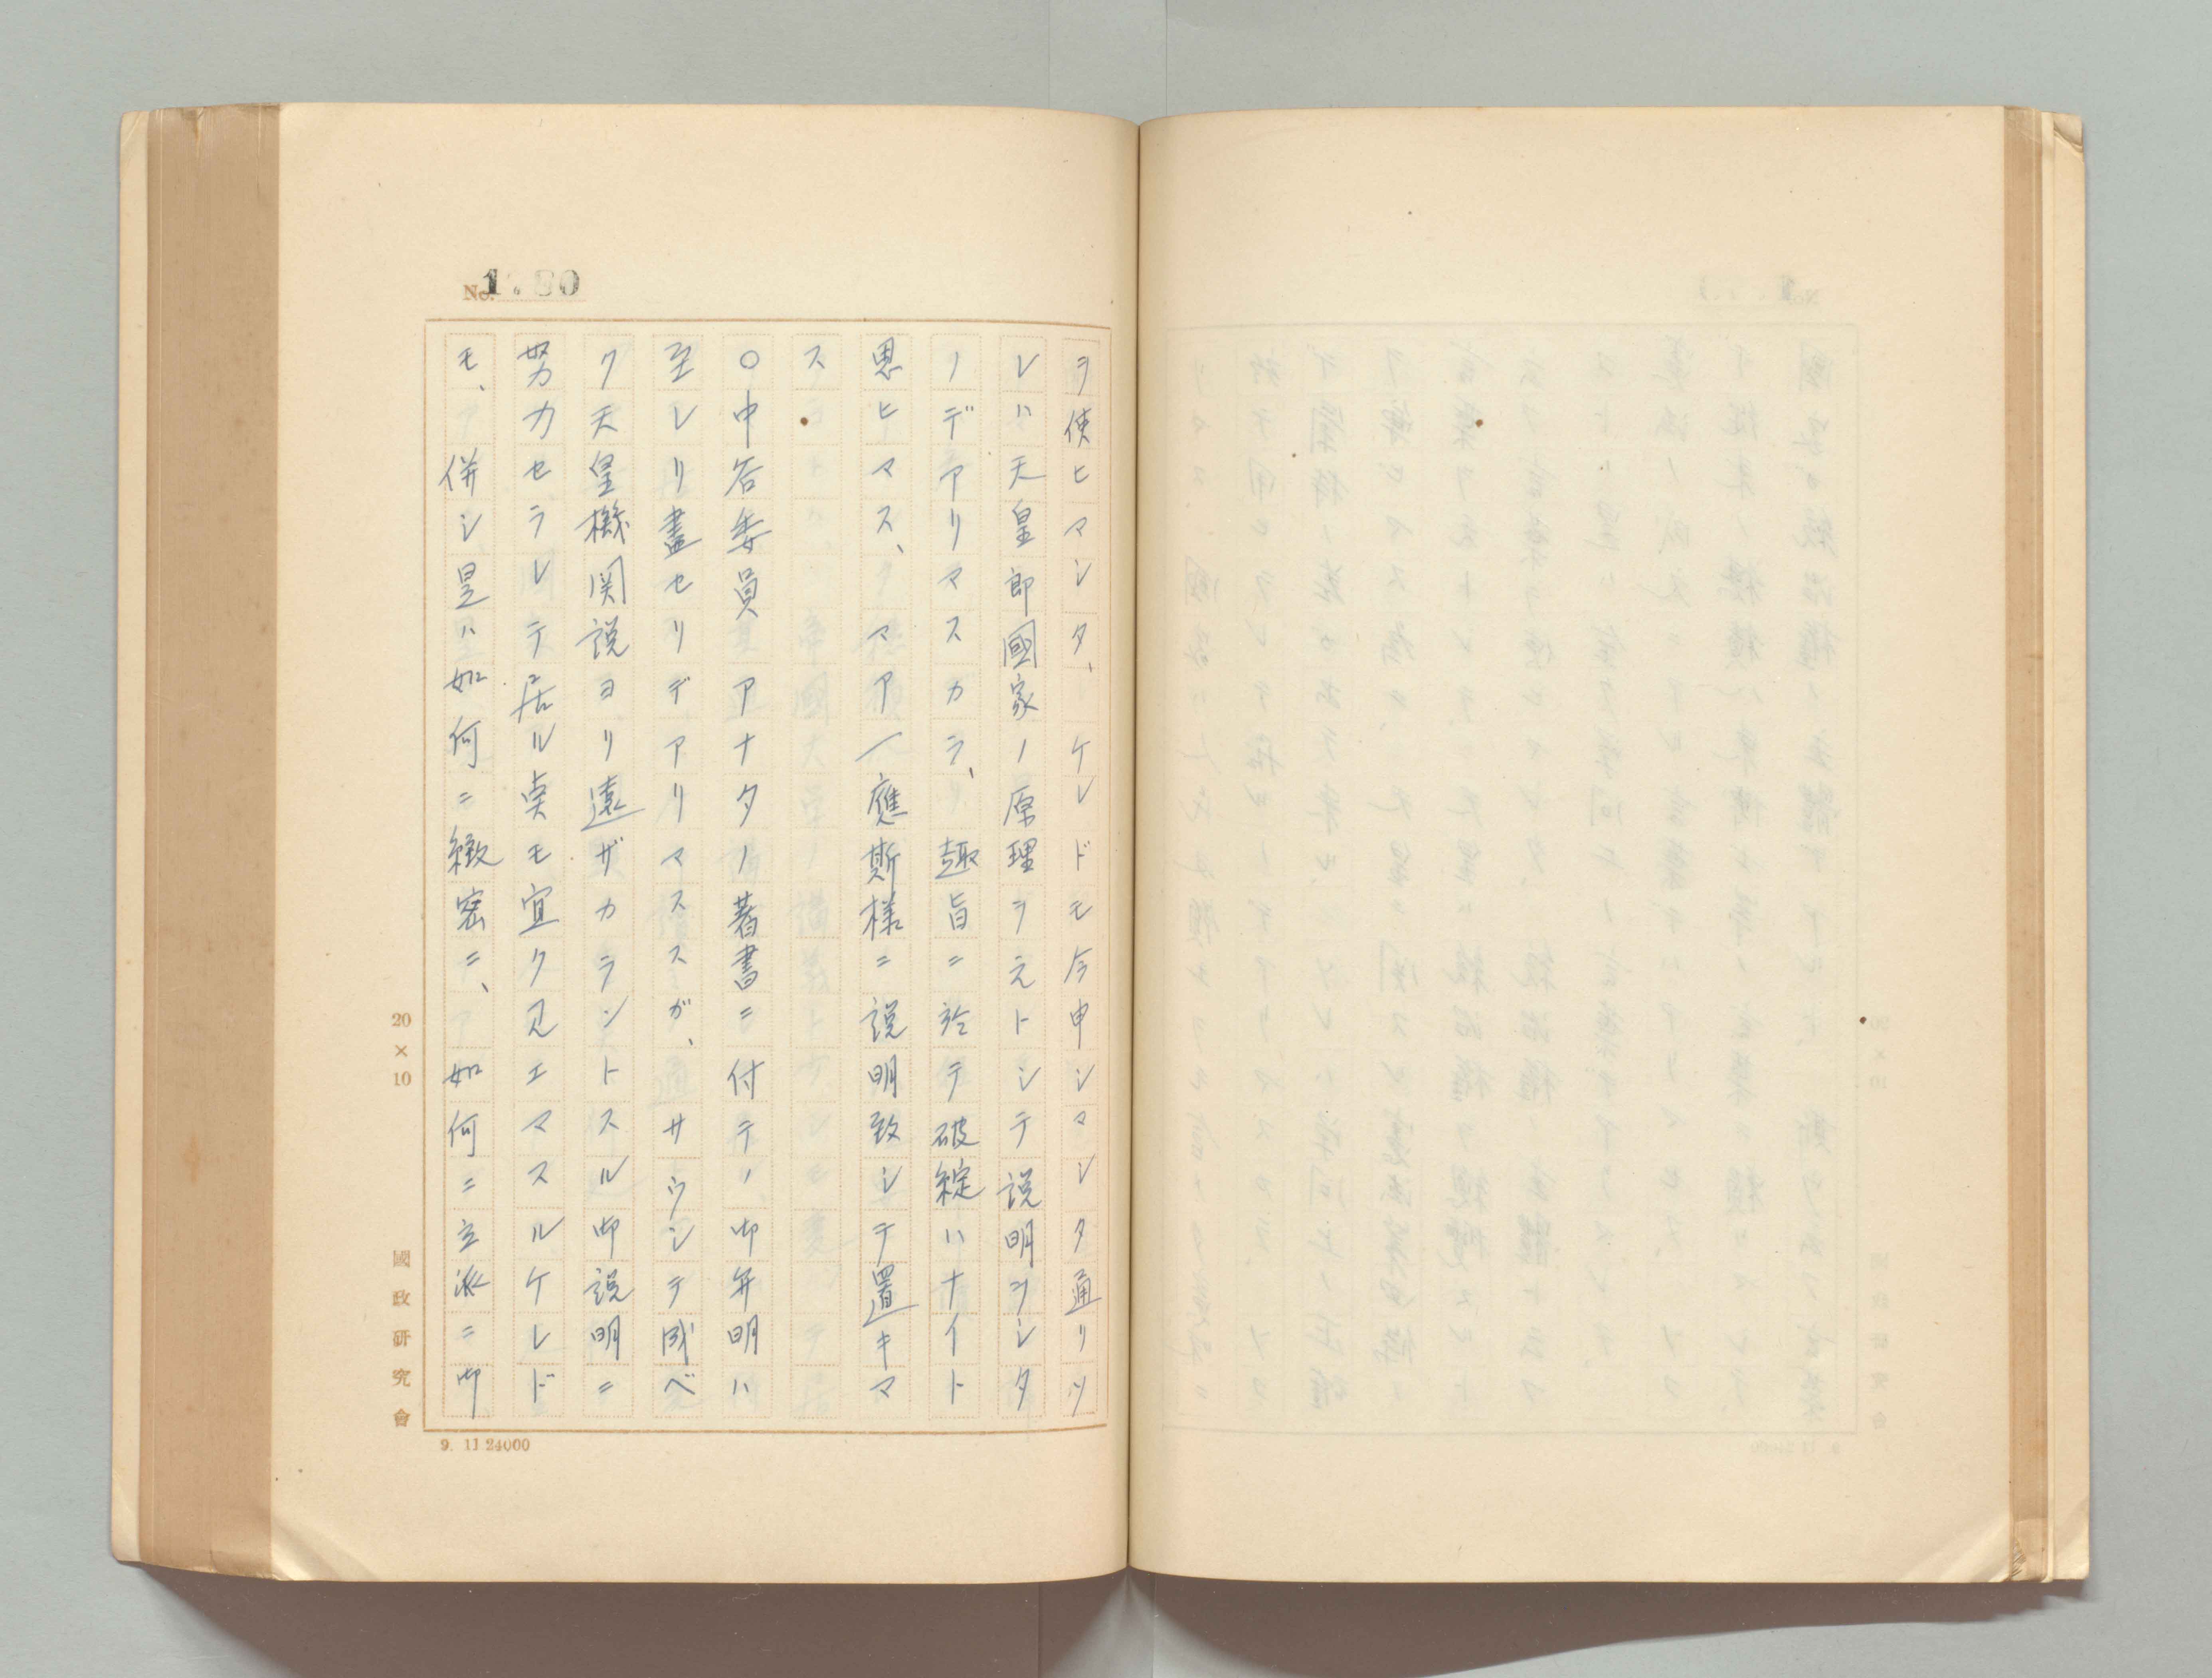 ヲ使ヒマシタ、ケレドモ今申シマシタ通リソ
レハ天皇即國家ノ原理ヲ元トシテ説明ヲシタ
ノデアリマスカラ、趣旨ニ於テ破綻ハナイト
思ヒマス、マア一應斯様ニ説明致シテ置キマ
ス
○中谷委員 アナタノ著書ニ付テノ御弁明ハ
至レリ盡セリデアリマスガ、サウシテ成ベ
ク天皇機関説ヨリ遠ザカラントスル御説明ニ
努力セラレテ居ル点モ宜ク見エマスルケレド
モ、併シ是ハ如何ニ緻密ニ、如何ニ立派ニ御
No.
20×10
國政研究會
9. 11 24000